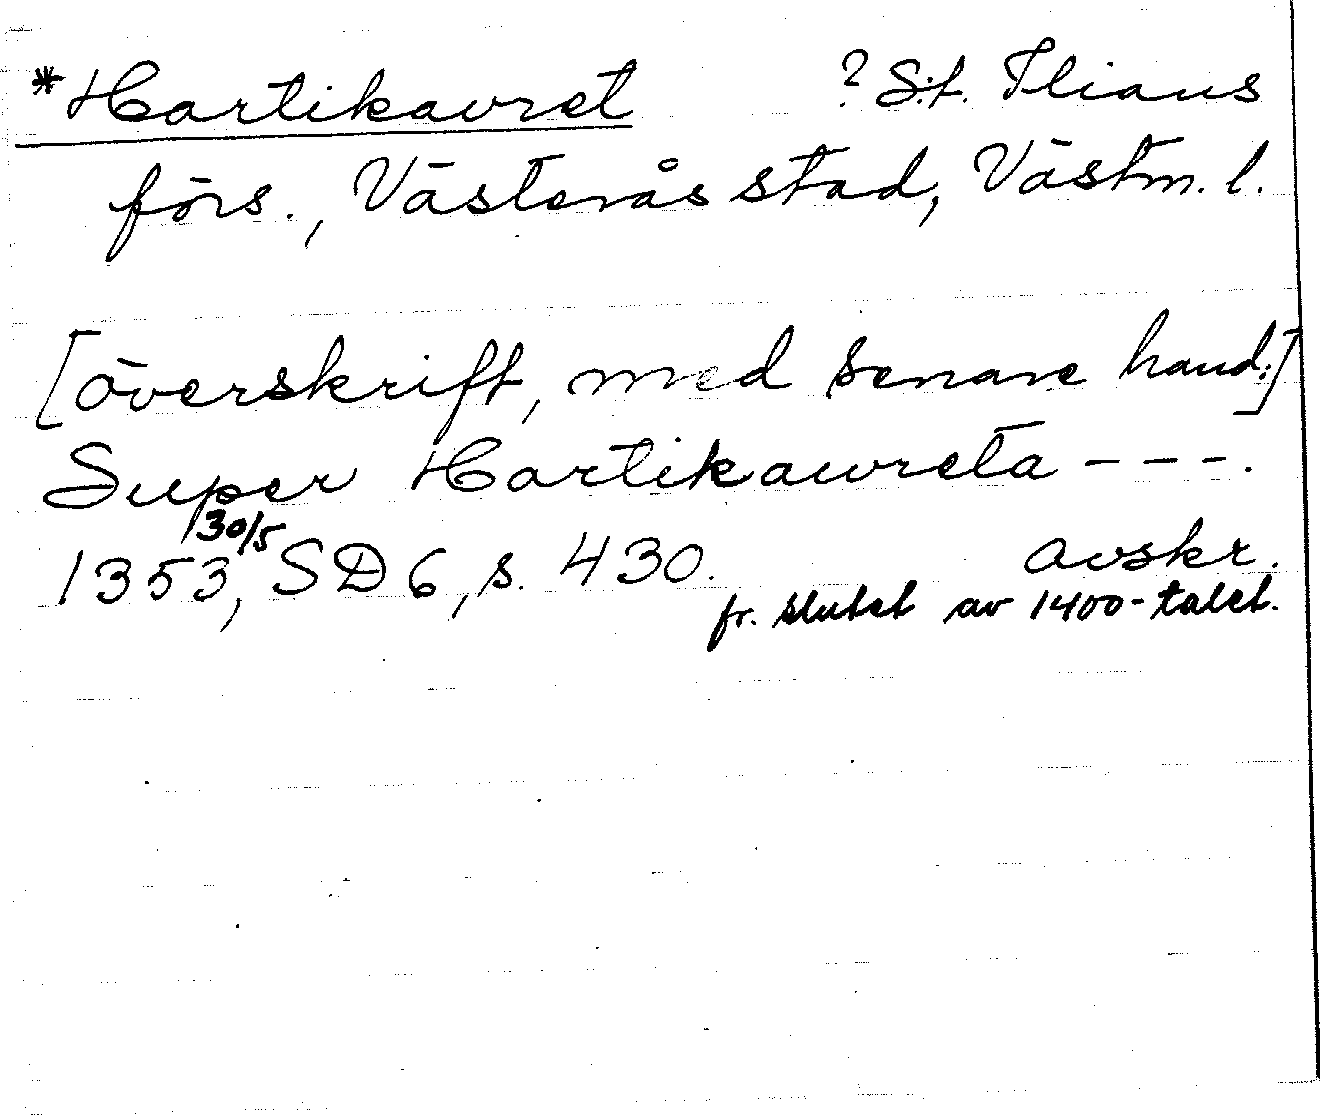 *Hartikavret ? S:t. Ilians
förs., Västerås stad, Västm. l.
[överskrift, med senare hand:]
Super Hartikawreta ---.
30/5
1353, SD 6, s. 430. avskr.
fr. slutet av 1400-talet.